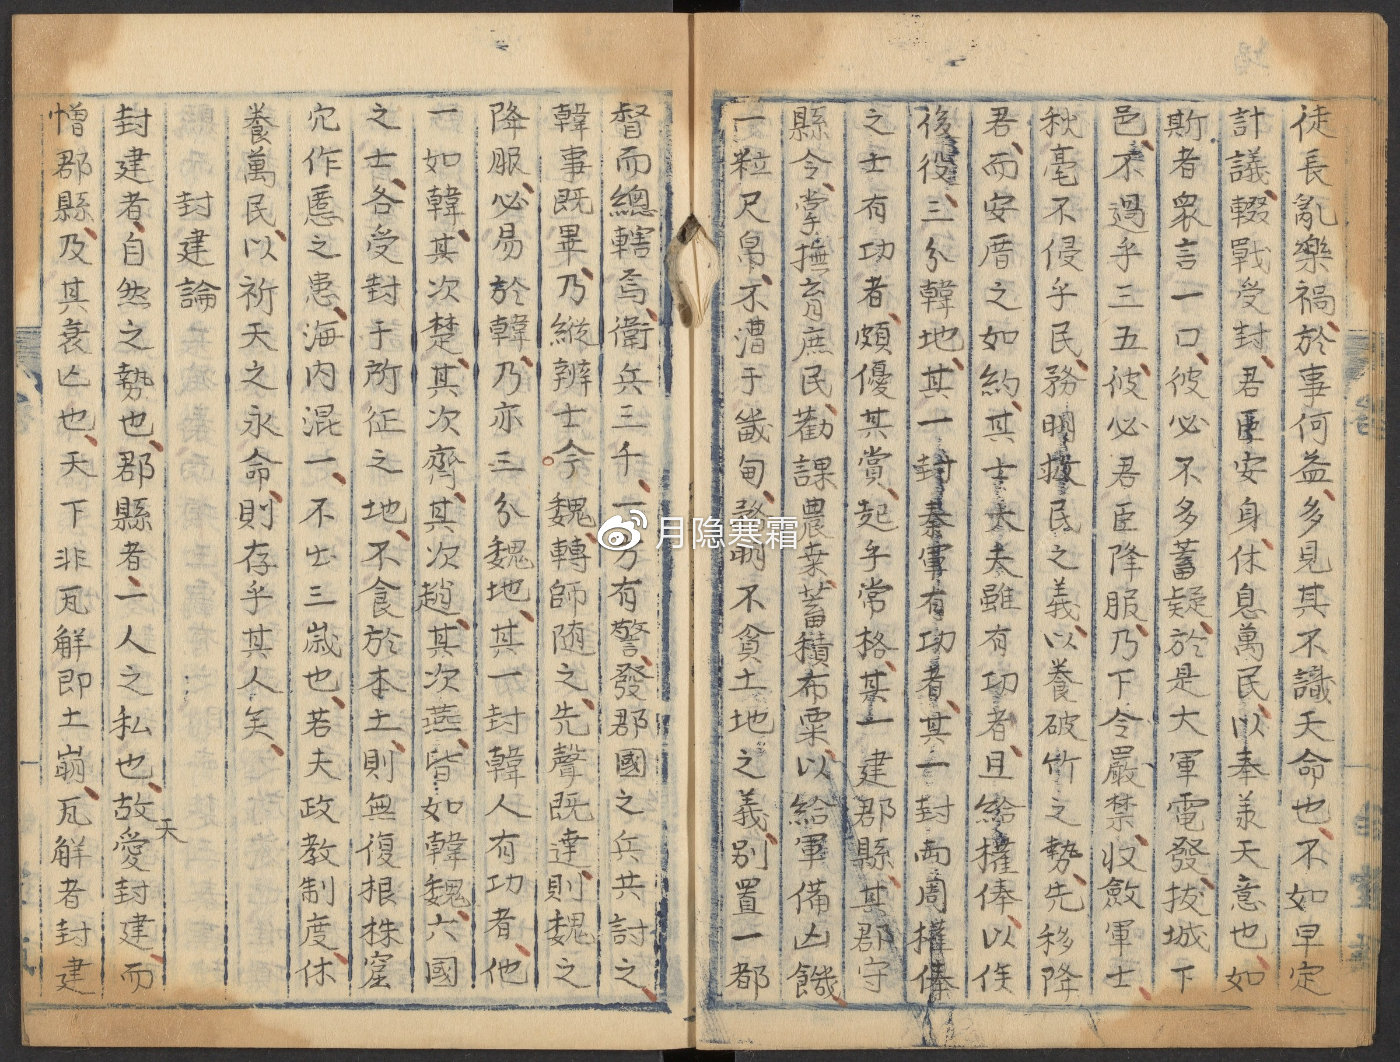 徒長亂樂禍於事何益多見其不識天命也不如早定
計議輟戰受封君臣安身休息萬民以奉羕天意也如
斯者衆言一口彼必不多蓄疑於是大軍電發拔城下
邑不過乎三五彼必君臣降服乃下令嚴禁收斂軍士
秋毫不侵乎民務明救民之義以養破竹之勢先移降
君而安厝之如約其士大夫雖有功者且給權俸以俟
後役三分韓地其一封秦軍有功者其一封兩周權俸
之士有功者頗優其賞起乎常格其一建郡縣其郡守
縣令掌撫育庶民勸課農桒蓄積布粟以給軍備凶饑
一粒尺帛不漕于畿甸務明不貪土地之義別置一都
督而總轄焉衛兵三千一方有警發郡國之兵共討之
韓事既畢乃縱辨士今魏轉師随之先聲既達則魏之
降服必易於韓乃亦三分魏地其一封韓人有功者他
一如韓其次楚其次齊其次趙其次燕皆如韓魏六國
之士各受封于所征之地不食於本土則無復根株窟
穴作慝之患海内混一不出三歲也若夫政教制度休
養萬民以祈天之永命則存乎其人矣
封建論
封建者自然之勢也郡縣者一人之私也故愛封建而
天
憎郡縣及其衰亡也天下非瓦解即土崩瓦解者封建
月隐寒霜